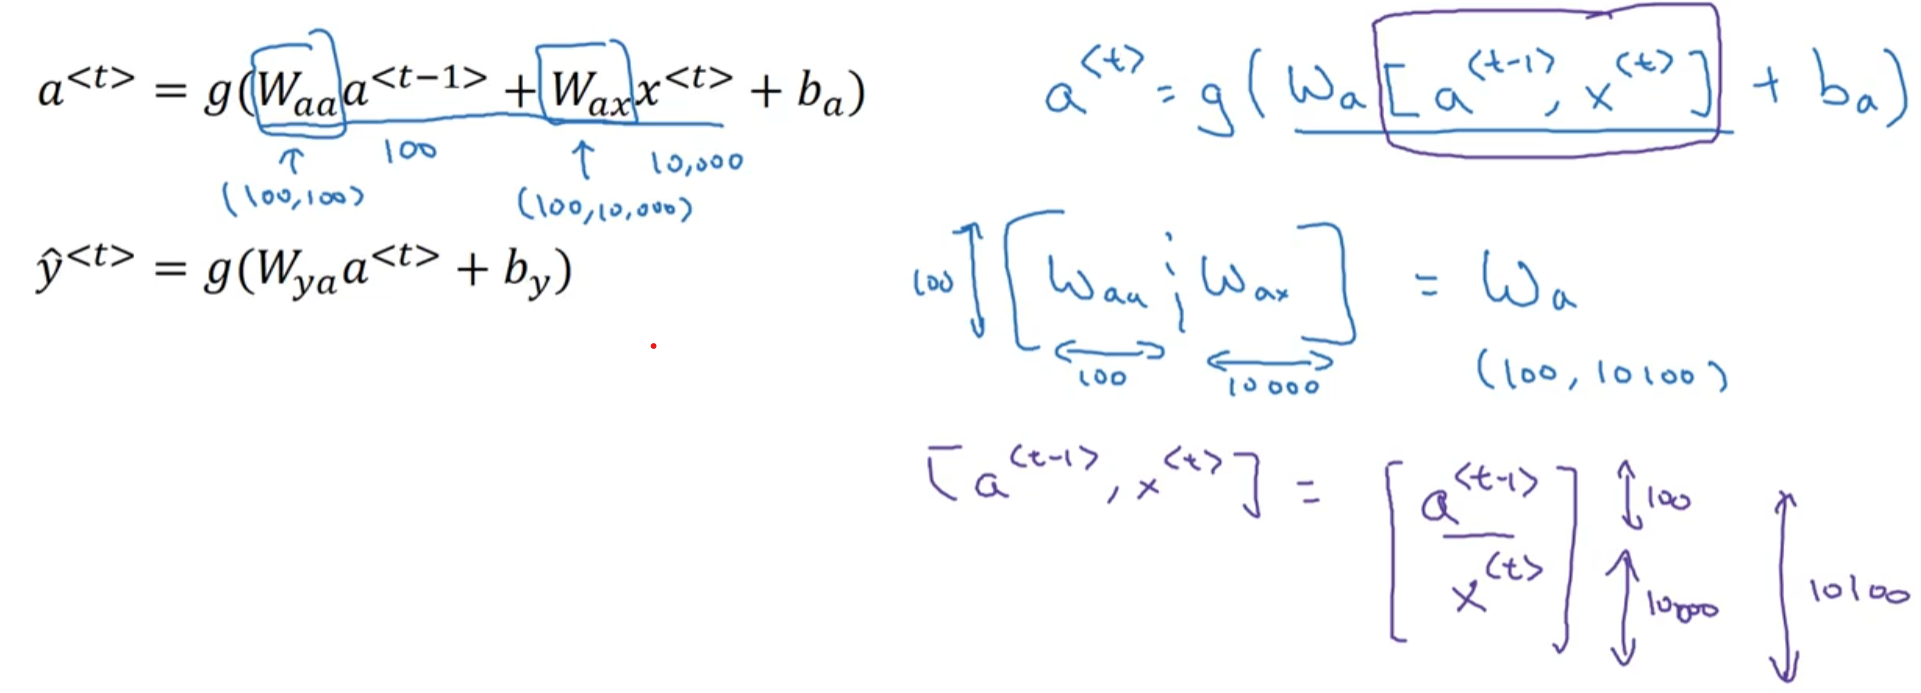 a<t> = g(Waaa<t−1> + Waxx<t> + ba)
↑ 100 ↑ 10,000
(100,100) (100,10,000)
ŷ<t> = g(Wyaa<t> + by)
a<t> = g(Wa[a<t-1>, x<t>] + ba)
100 [Waa ¦ Wax] = Wa
100 10000 (100, 10100)
[a<t-1>, x<t>] = [a<t-1>
x<t>]
100
10000
10100